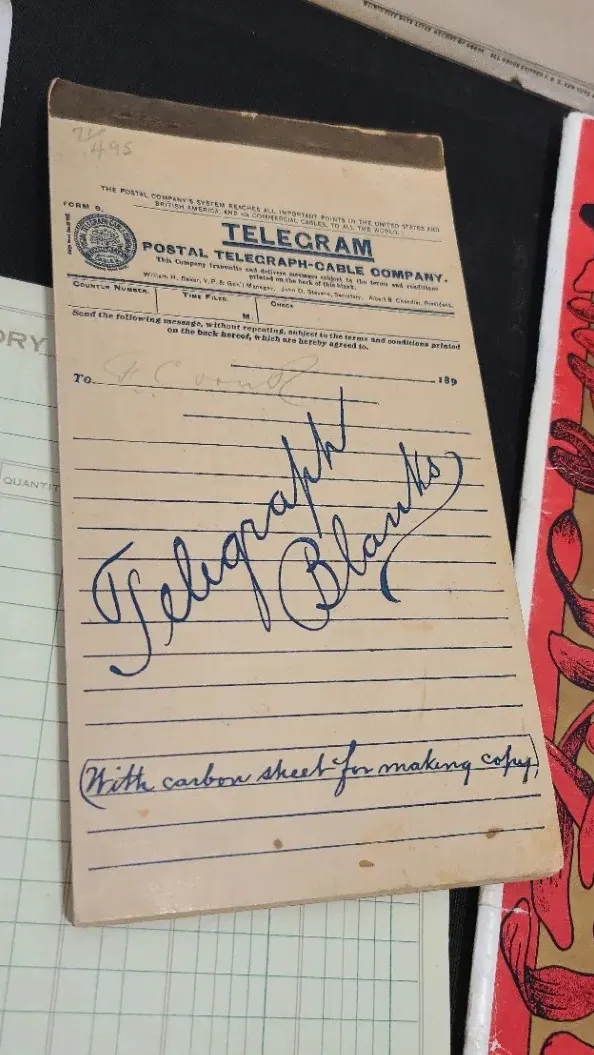 495
THE POSTAL COMPANY'S SYSTEM REACHES ALL IMPORTANT POINTS IN THE UNITED STATES AND
BRITISH AMERICA, AND via COMMERCIAL CABLES, TO ALL THE WORLD.
FORM 6.
TELEGRAM
POSTAL TELEGRAPH-CABLE COMPANY.
This Company transmits and delivers messages subject to the terms and conditions
printed on the back of this blank.
William H. Baker, V. P. & Gen'l Manager. John O. Stevens, Secretary. Albert B. Chandler, President.
COUNTER NUMBER. TIME FILED. CHECK
M
Send the following message, without repeating, subject to the terms and conditions printed
on the back hereof, which are hereby agreed to.
189
To
Telegraph
Blanks
(With carbon sheet for making copy)
ORY
QUANTIT